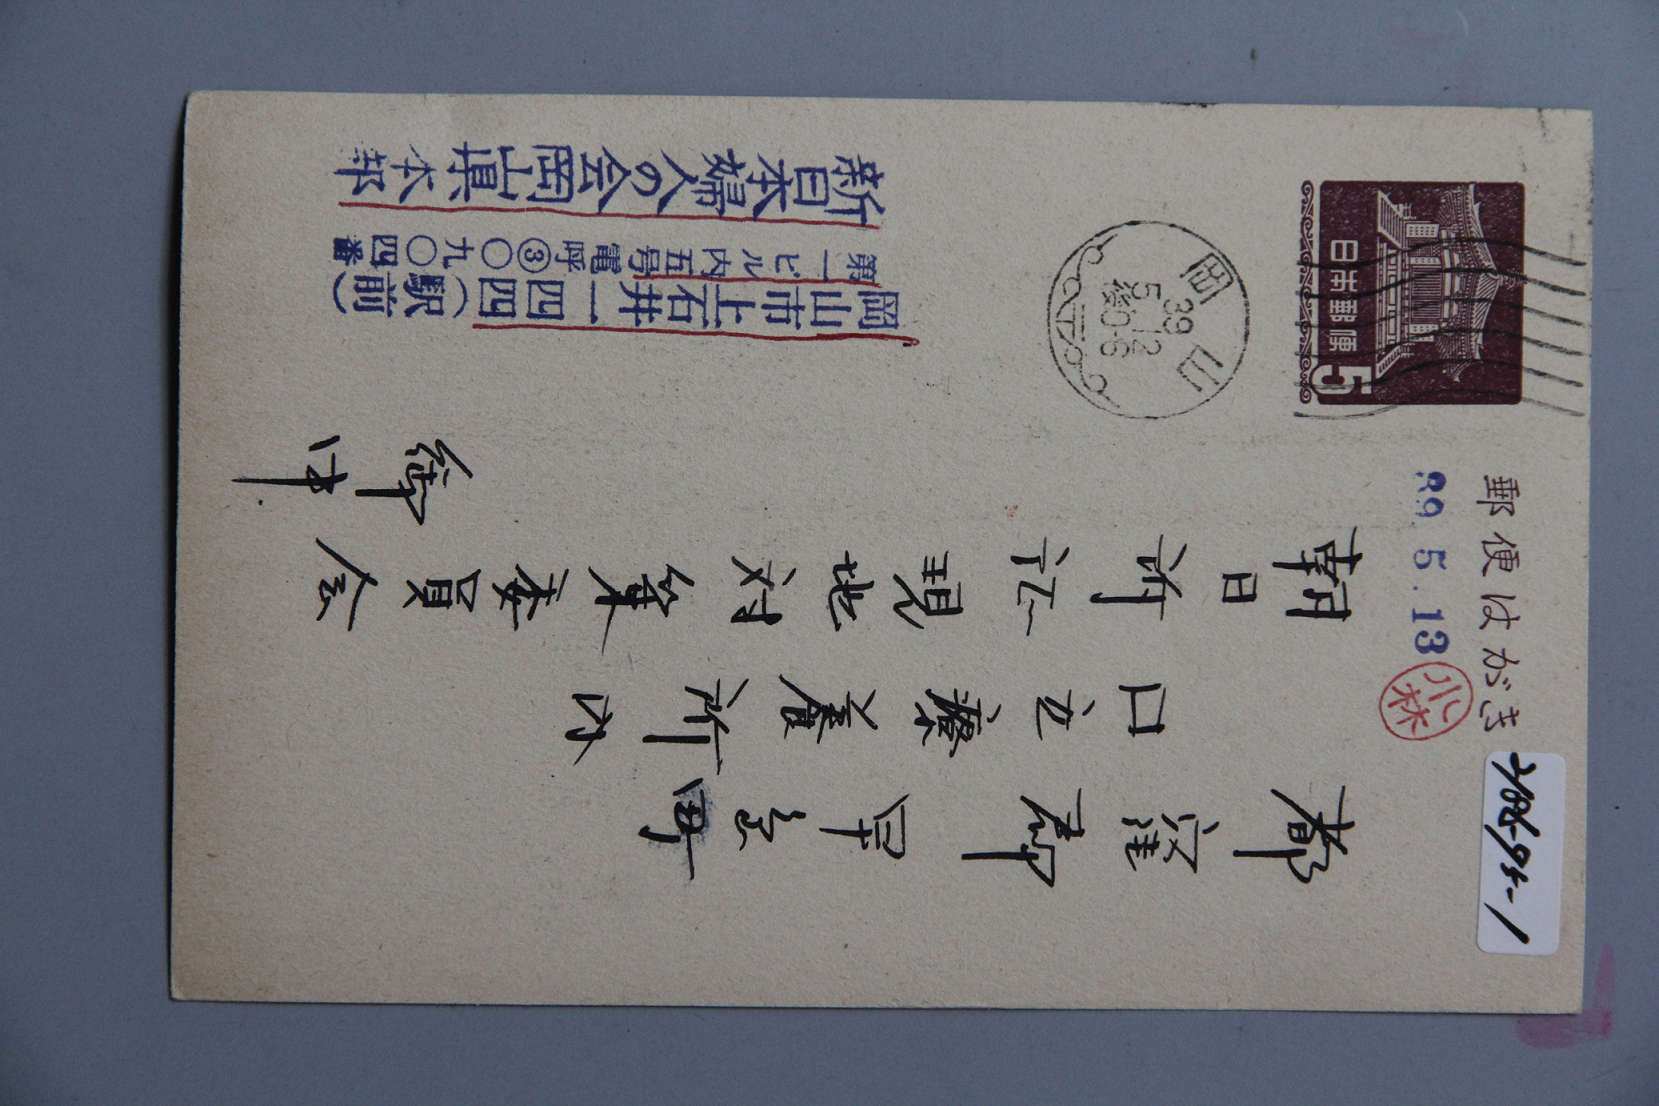 郵便はがき
日本郵便
5
岡山
39
5.12
後0-6
39.5.13
小林
都窪郡早島町
口立療養所内
朝日訴訟現地対策委員会
御中
岡山市上石井一四四(駅前)
第一ビル内五号電呼③〇九〇四番
新日本婦人の会岡山県本部